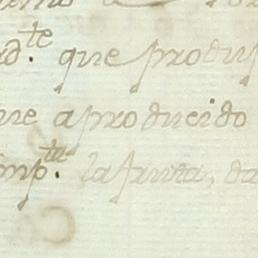 d.te que produj
ue aproducido
mp.ta la fruta, da